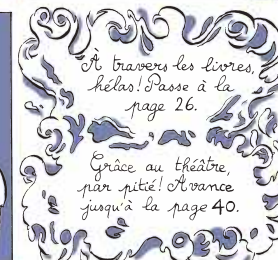 À travers les livres,
hélas! Passe à la
page 26.
Grâce au théâtre,
par pitié! Avance
jusqu'à la page 40.